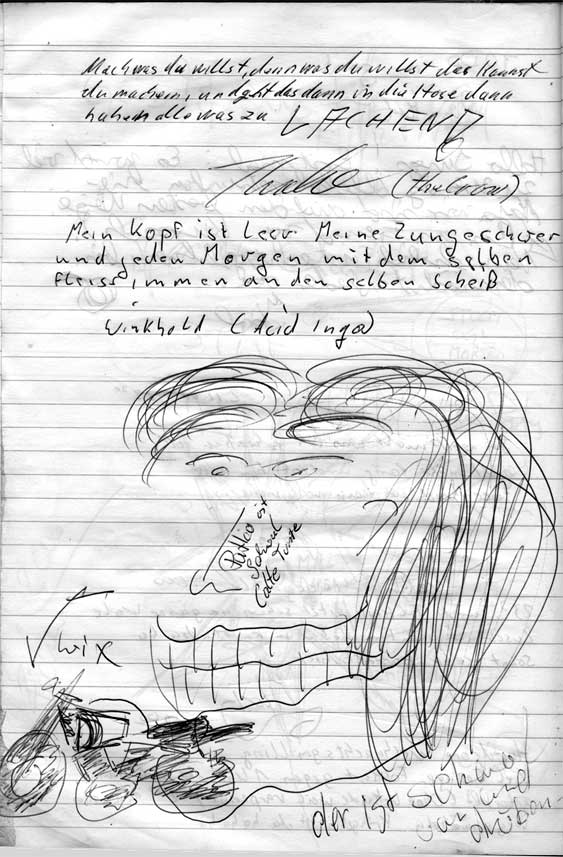 Mach was du willst, denn was du willst das kannst
du machen, und geht das dann in die Hose dann
haben alle was zu LACHEN
(the Crow)
Mein Kopf ist leer Meine Zunge schwer
und jeden Morgen mit dem selben
Fleiss immer an den selben Scheiß
Winkhold (Acid Inga)
ist
Schwul
Calte Tunte
Wix
der ist schwul
und
drüben